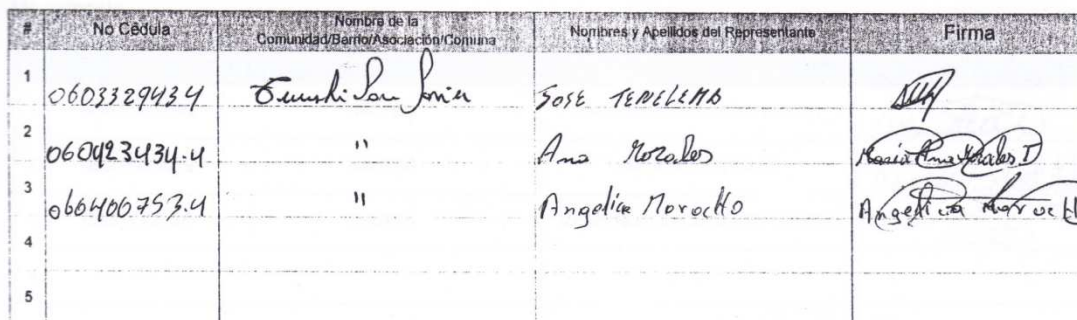 # No Cédula Nombre de la Comunidad/Barrio/Asociación/Comuna Nombres y Apellidos del Representante Firma
1 0603329434 San Javier JOSE TENELEMA
2 060423434-4 " Ana Morales Maria Ana Morales D
3 060400753-4 " Angelica Morocho Angelica Morocho
4
5